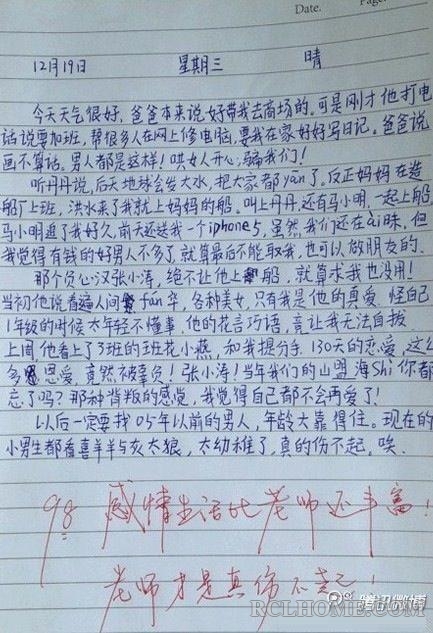 Date.
Page.
12月19日 星期三 晴
今天天气很好，爸爸本来说好带我去商场的。可是刚才他打电
话说要加班，帮很多人在网上修电脑，要我在家好好写日记。爸爸说
画不算话。男人都是这样！哄女人开心，骗我们！
听丹丹说，后天地球会发大水，把大家都yān了。反正妈妈在造
船厂上班，洪水来了我就上妈妈的船。叫上丹丹，还有马小明，一起上船，
马小明追了我好久，前天还送我一个iphone5，虽然我们还在ài昧，但
我觉得有钱的好男人不多了，就算最后不能取我，也可以做朋友的。
那个负心汉张小涛，绝不让他上船，就算求我也没用！
当初他说看遍人间fán华，各种美女，只有我是他的真爱，怪自己
1年级的时候太年轻不懂事，他的花言巧语，竟让我无法自拔，
上周，他看上了3班的班花小燕，和我提分手，130天的恋爱，这么
多恩爱，竟然被辜负！张小涛！当年我们的山盟海Shì你都
忘了吗？那种背叛的感觉，我觉得自己都不会再爱了！
以后一定要找05年以前的男人，年龄大靠得住。现在的
小男生都看喜羊羊与灰太狼，太幼稚了，真的伤不起，唉。
98 感情生活比老师还丰富！
老师才是真伤不起！
腾讯微博
RCLHOME.COM